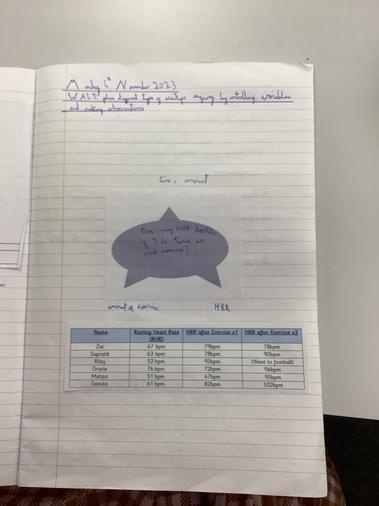 Monday 6th November 2023
WALT plan different types of scientific enquiry by controlling variables
and making observations
amount
my HRR double
if I do twice as
much exercise?
amount of exercise HRR
Name Resting Heart Rate (RHR) HRR after Exercise x1 HRR after Exercise x2
Zac 67 bpm 79bpm 78bpm
Supratik 63 bpm 78bpm 90bpm
Riley 52 bpm 95bpm (Went to football)
Gracie 76 bpm 72bpm 96bpm
51 bpm 67bpm 95bpm
61 bpm 82bpm 102bpm